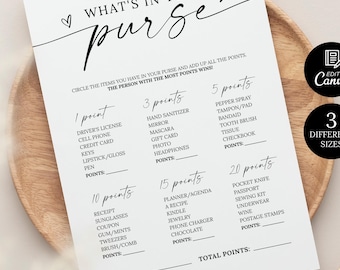 WHAT'S IN Y
purse
CIRCLE THE ITEMS YOU HAVE IN YOUR PURSE AND ADD UP ALL THE POINTS.
THE PERSON WITH THE MOST POINTS WINS!
1 point
DRIVER'S LICENSE
CELL PHONE
CREDIT CARD
KEYS
LIPSTICK/GLOSS
PEN
POINTS:
3 points
HAND SANITIZER
MIRROR
MASCARA
GIFT CARD
PHOTO
HEADPHONES
POINTS:
5 points
PEPPER SPRAY
TAMPON/PAD
BANDAID
TOOTH BRUSH
TISSUE
CHECKBOOK
POINTS:
10 points
RECEIPT
SUNGLASSES
COUPON
GUM/MINTS
TWEEZERS
BRUSH/COMB
POINTS:
15 points
PLANNER/AGENDA
A RECIPE
KINDLE
JEWELRY
PHONE CHARGER
CHOCOLATE
POINTS:
20 points
POCKET KNIFE
PASSPORT
SEWING KIT
UNDERWEAR
WINE
POSTAGE STAMPS
POINTS:
TOTAL POINTS:
EDIT
Canv
3
DIFFERE
SIZES